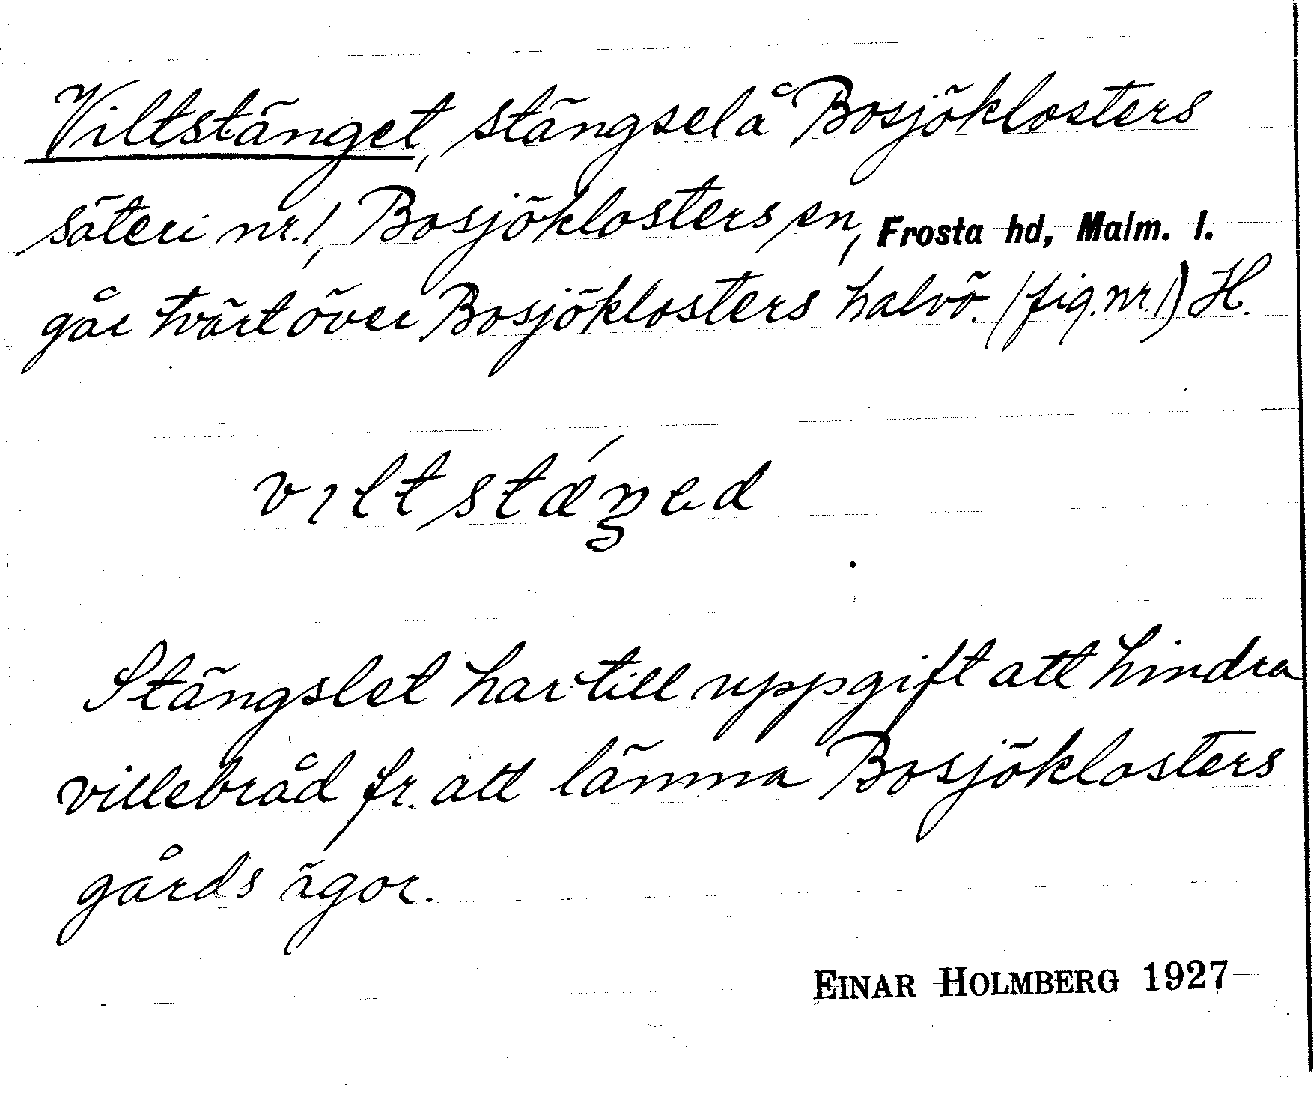 Viltstänget, stängsel å Bosjöklosters
säteri nr. 1, Bosjöklosters sn, Frosta hd, Malm. l.
går tvärt över Bosjöklosters halvö. (fig. nr. 1) H.
vıltstæ´ŋəd
Stängslet har till uppgift att hindra
villebråd fr. att lämna Bosjöklosters
gårds ägor.
EINAR HOLMBERG 1927